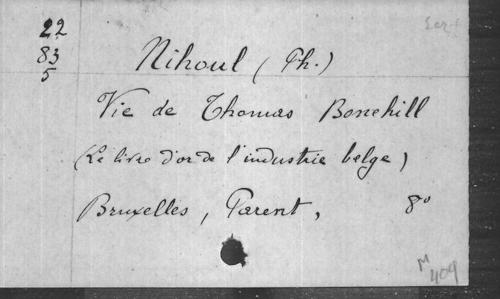 22
83
5
Nihoul (Ph.)
Vie de Thomas Bonehill
(Le livre d'or de l'industrie belge)
Bruxelles, Parent, 8°
M
409